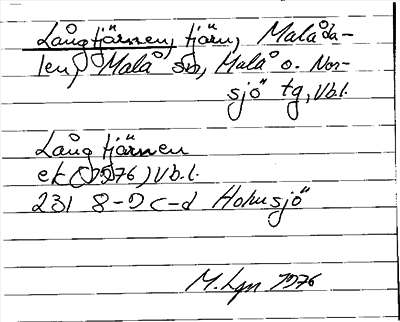 Långtjärnen, tjärn, Malåda-
len, Malå sn, Malå o. Nor-
sjö tg, Vb.l.
Långtjärnen
ek (1976) Vb.l.
231 8-9 c-d Hohusjö
M. Lgn 1976